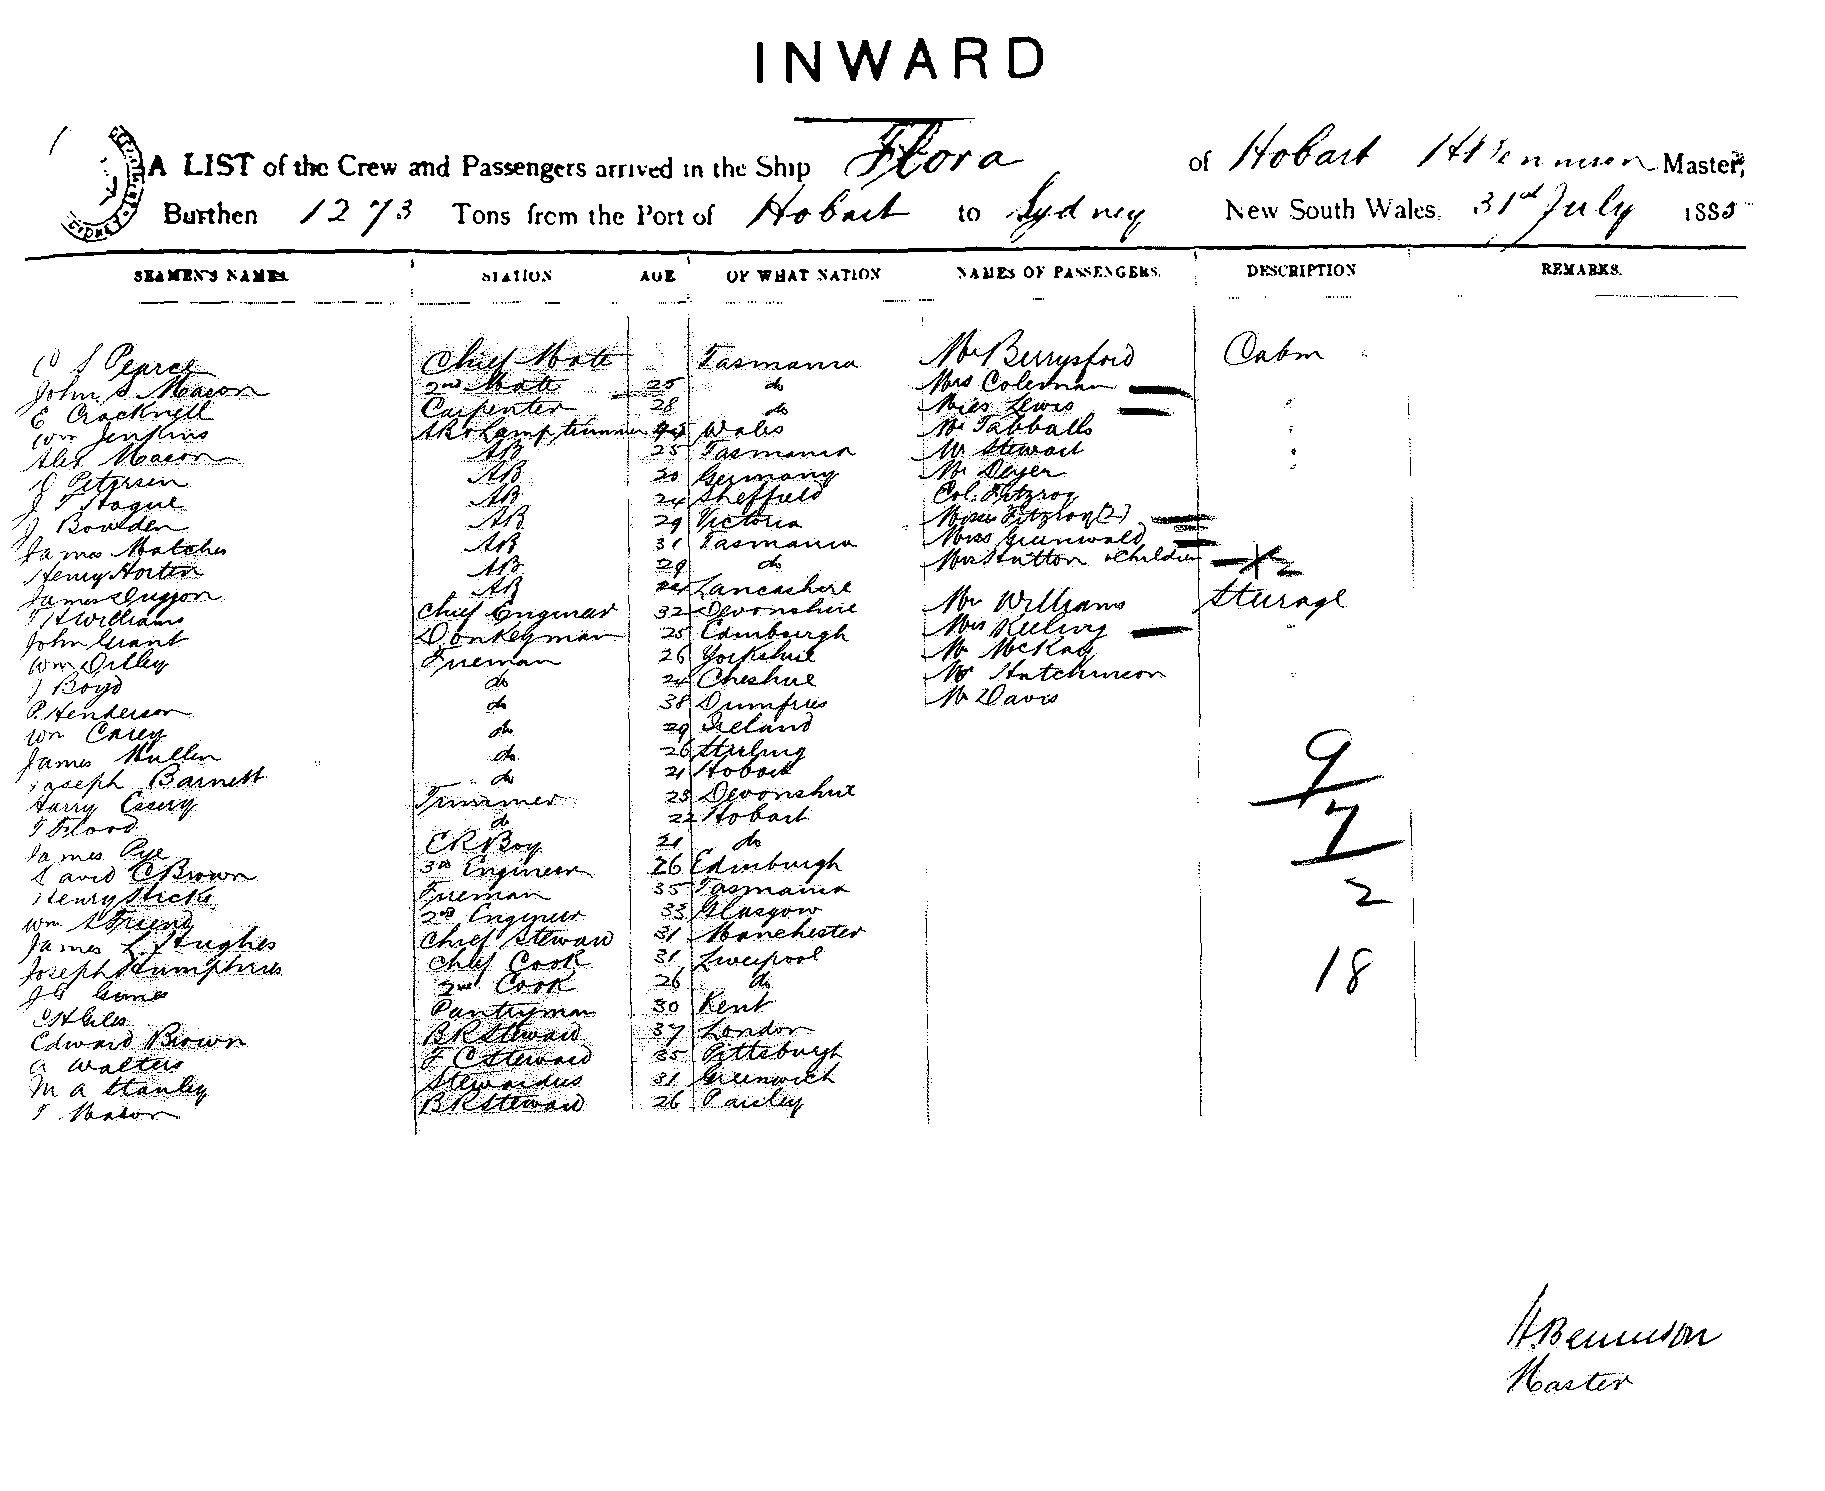 INWARD
A LIST of the Crew and Passengers arrived in the Ship Flora of Hobart H Bennison Master,
Burthen 1273 Tons from the Port of Hobart to Sydney New South Wales, 31st July 1885
SEAMEN'S NAMES. STATION AGE OF WHAT NATION NAMES OF PASSENGERS. DESCRIPTION REMARKS.
C S Pearce Chief Mate Tasmania Mr Berrysford Cabin
John S Mason 2nd Mate 25 do Mrs Coleman
E Cracknell Carpenter 28 do Miss Lewis
Wm Jenkins AB & Lamp trimmer Wales Mr Tabballs
Alex Mason AB 25 Tasmania Mr Stewart
J Petersen AB 20 Germany Mr Dwyer
J T Hague AB 24 Sheffield Col. Fitzroy
J Bowden AB 29 Victoria Misses Fitzroy (2)
James Matches AB 31 Tasmania Miss Grunwald
Henry Horten AB 29 do Mrs Hutton & Children 2
James AB 24 Lancashire
T H Williams Chief Engineer 32 Devonshire Mr Williams Steerage
John Grant Donkeyman 25 Edinburgh Mrs Keeling
Wm Dilley Fireman 26 Yorkshire Mr McKay
J Boyd do 24 Cheshire Mr Hutchinson
P. Henderson do 38 Dumfries Mr Davis
Wm Carey do 29 Ireland
James Mullen do 26 Stirling
Joseph Barnett do 21 Hobart
Harry Essery Trimmer 23 Devonshire
T Flood do 22 Hobart
James Pye CR Boy 21 do
David C Brown 3rd Engineer 26 Edinburgh
Henry Hicks Fireman 35 Tasmania
Wm S Friend 2nd Engineer 33 Glasgow
James L Hughes Chief Steward 31 Manchester
Joseph Humphries Chief Cook 31 Liverpool
2nd Cook 26 do
C H Giles Pantryman 30 Kent
Edward Brown BR Steward 37 London
A Walters F C Steward 35 Pittsburgh
M A Stanley Stewardess 31 Greenwich
T Mason BR Steward 26 Paisley
9
7
2
18
H Bennison
Master